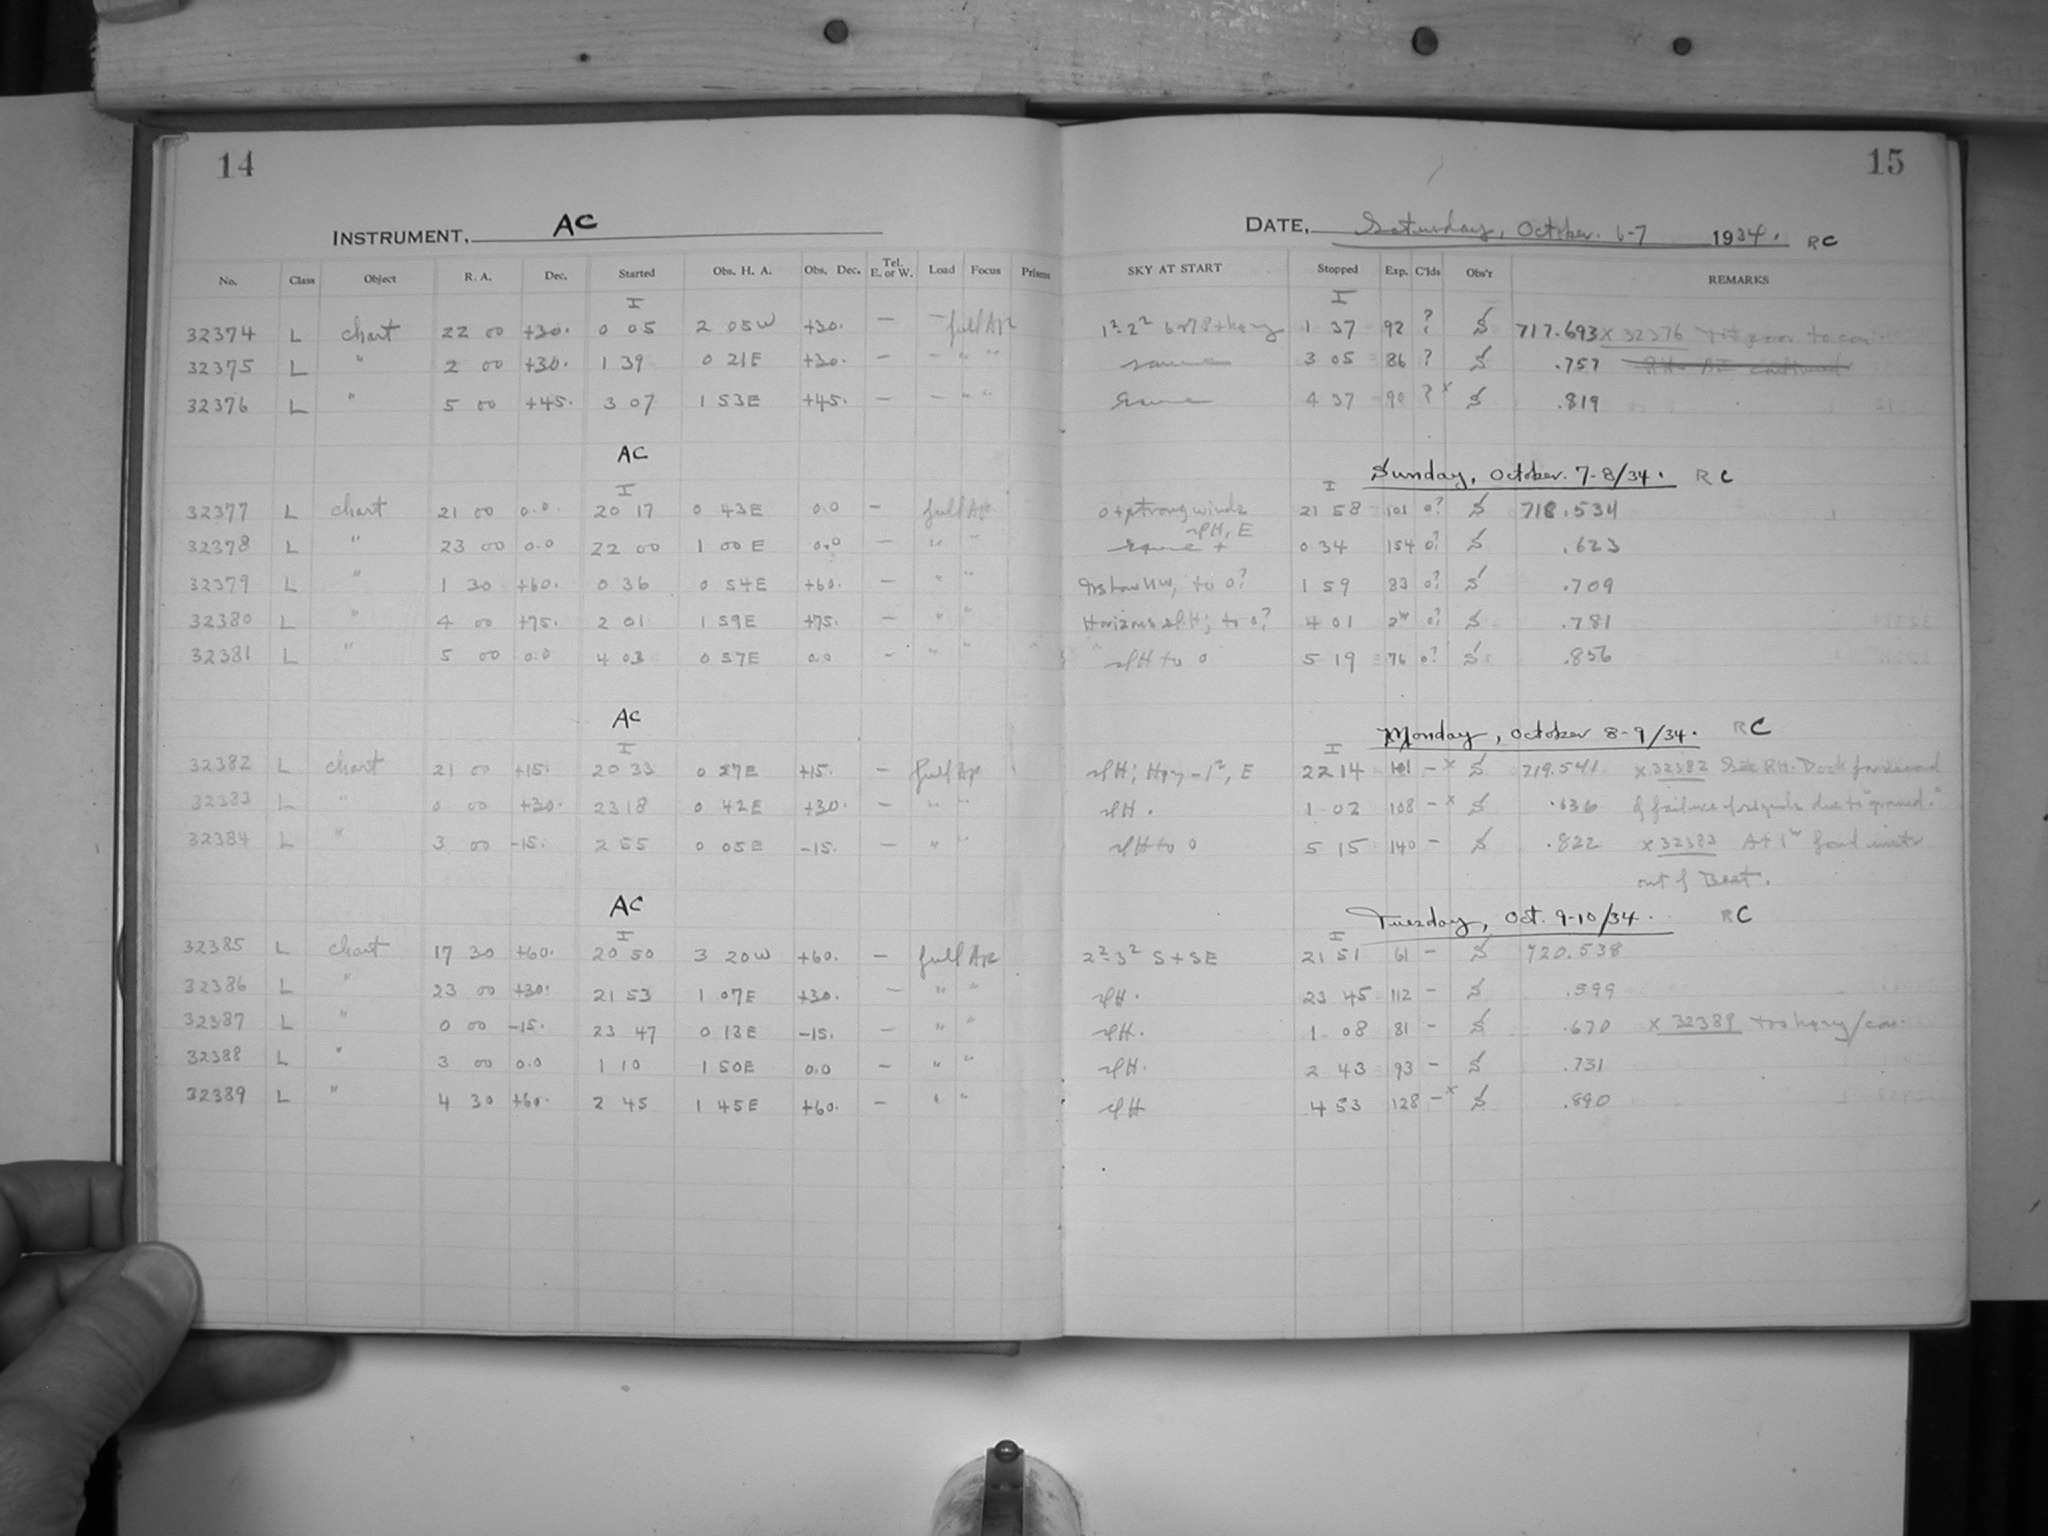 14
INSTRUMENT, AC
No. Class Object R. A. Dec. Started Obs. H. A. Obs. Dec. Tel. E. or W. Load Focus Prisms
I
32374 L chart 22 00 +30. 0 05 2 05W +30. — — full Apr
32375 L " 2 00 +30. 1 39 0 21E +30. — — " "
32376 L " 5 00 +45. 3 07 1 53E +45. — — " "
AC
I
32377 L chart 21 00 0.0. 20 17 0 43E 0.0 — full Apr
32378 L " 23 00 0.0 22 00 1 00E 0.0 — " "
32379 L " 1 30 +60. 0 36 0 54E +60. — " "
32380 L " 4 00 +75. 2 01 1 59E +75. — " "
32381 L " 5 00 0.0 4 03 0 57E 0.0 — " "
AC
I
32382 L chart 21 00 +15. 20 33 0 27E +15. — full Apr
32383 L " 0 00 +30. 23 18 0 42E +30. — " "
32384 L " 3 00 -15. 2 55 0 05E -15. — " "
AC
I
32385 L chart 17 30 +60. 20 50 3 20W +60. — full Apr
32386 L " 23 00 +30. 21 53 1 07E +30. — " "
32387 L " 0 00 -15. 23 47 0 13E -15. — " "
32388 L " 3 00 0.0 1 10 1 50E 0.0 — " "
32389 L " 4 30 +60. 2 45 1 45E +60. — " "
15
DATE, Saturday, October. 6-7 1934. RC
SKY AT START Stopped Exp. C'lds Obs'r REMARKS
I
1 37 92 ? S 717.693 x 32376
same 3 05 86 ? S .757
same 4 37 90 ? x S .819
Sunday, October. 7-8/34. RC
I
0 + strong winds 21 58 101 0? S 718.534
spH, E
same + 0 34 154 0? S .623
to 0? 1 59 83 0? S .709
Horizons spH; to 0? 4 01 2H 0? S .781
spH to 0 5 19 76 0? S .856
Monday, October 8-9/34. RC
I
spH; Hpy - 1², E 22 14 101 — x S 719.541 x 32382 See RH. Book for record
spH. 1 02 108 — x S .636 of failure of signals due to "ground."
spH to 0 5 15 140 — S .822 x 32383 At 1H found instr
out of Beat.
Tuesday, Oct. 9-10/34. RC
I
2²-3² S + SE 21 51 61 — S 720.538
spH. 23 45 112 — S .599
spH. 1 08 81 — S .670 x 32389 too hazy/
spH. 2 43 93 — S .731
spH 4 53 128 — x S .890